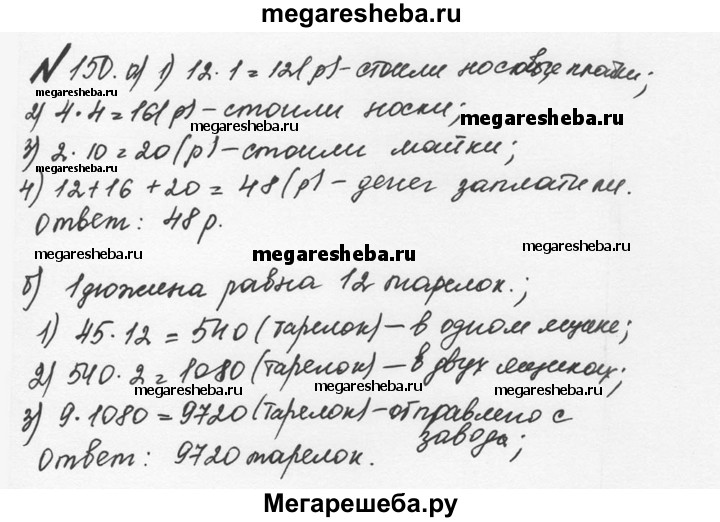 megaresheba.ru
№ 150. а) 1) 12 · 1 = 12 (р) – стоили носовые платки;
megaresheba.ru
2) 4 · 4 = 16 (р) – стоили носки;
megaresheba.ru megaresheba.ru
3) 2 · 10 = 20 (р) – стоили майки;
megaresheba.ru
4) 12 + 16 + 20 = 48 (р) – денег заплатили.
Ответ: 48 р.
megaresheba.ru megaresheba.ru megaresheba.ru
б) 1 дюжина равна 12 тарелок.;
1) 45 · 12 = 540 (тарелок) – в одном ящике;
megaresheba.ru
2) 540 · 2 = 1080 (тарелок) – в двух ящиках;
megaresheba.ru megaresheba.ru megaresheba.ru
3) 9 · 1080 = 9720 (тарелок) – отправлено с
завода;
Ответ: 9720 тарелок.
Мегарешеба.ру